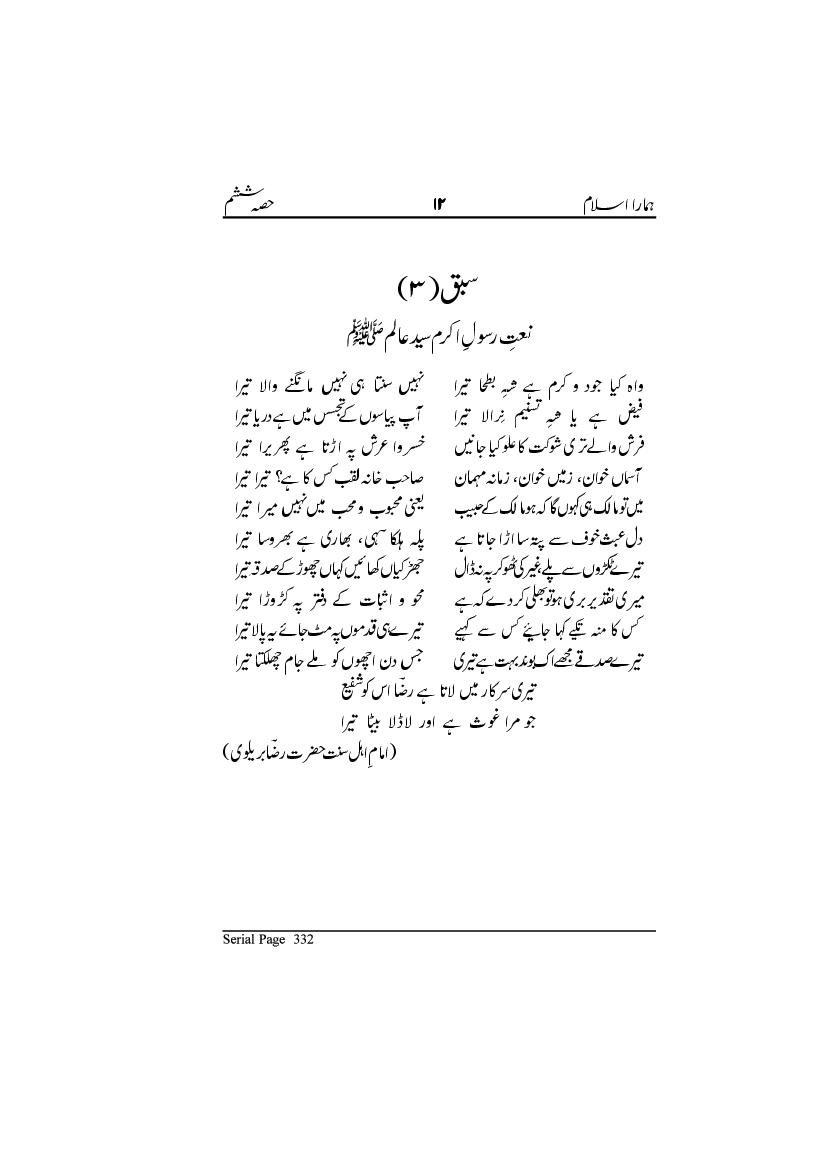 ہمارا اسلام ۱۲ حصہ ششم
سبق (۳)
نعتِ رسولِ اکرم سید عالم ﷺ
واہ کیا جود و کرم ہے شہِ بطحا تیرا نہیں سنتا ہی نہیں مانگنے والا تیرا
فیض ہے یا شہِ تسنیم نِرالا تیرا آپ پیاسوں کے تجسس میں ہے دریا تیرا
فرش والے تری شوکت کا علو کیا جانیں خسروا عرش پہ اڑتا ہے پھریرا تیرا
آسماں خوان، زمیں خوان، زمانہ مہمان صاحب خانہ لقب کس کا ہے؟ تیرا تیرا
میں تو مالک ہی کہوں گا کہ ہو مالک کے حبیب یعنی محبوب و محب میں نہیں میرا تیرا
دل عبث خوف سے پتہ سا اڑا جاتا ہے پلہ ہلکا سہی، بھاری ہے بھروسا تیرا
تیرے ٹکڑوں سے پلے، غیر کی ٹھوکر پہ نہ ڈال جھڑکیاں کھائیں کہاں چھوڑ کے صدقہ تیرا
میری تقدیر بری ہو تو بھلی کر دے کہ ہے محو و اثبات کے دفتر پہ کڑوڑا تیرا
کس کا منہ تکیے کہا جایئے کس سے کہیے تیرے ہی قدموں پہ مٹ جائے یہ پالا تیرا
تیرے صدقے مجھے اک بوند بہت ہے تیری جس دن اچھوں کو ملے جام چھلکتا تیرا
تیری سرکار میں لاتا ہے رضؔا اس کو شفیع
جو مرا غوث ہے اور لاڈلا بیٹا تیرا
(امامِ اہل سنت حضرت رضؔا بریلوی)
Serial Page 332